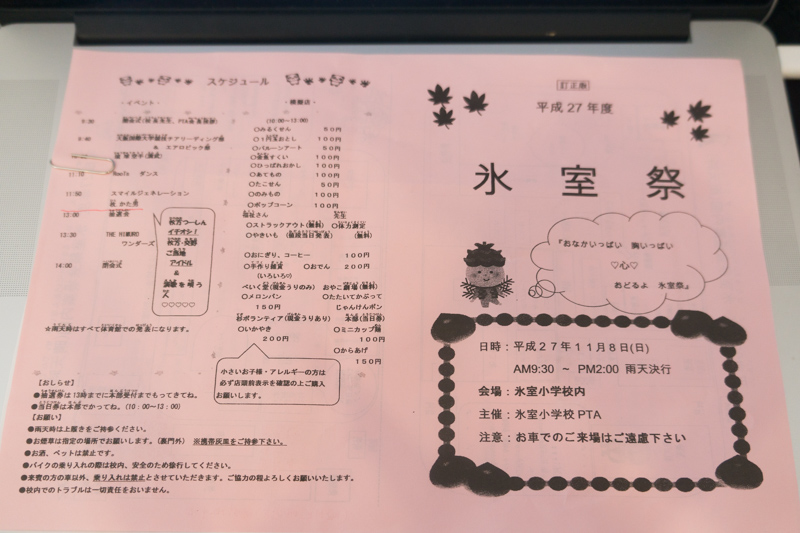 スケジュール
・イベント・
・模擬店・
9:30
(10:00～13:00)
○みるくせん 50円
9:40
○1円玉おとし 100円
& エアロビック部
○バルーンアート 50円
○金魚すくい 100円
○ひっぱれおかし 100円
11:10 ダンス
○あてもの 100円
○たこせん 50円
11:50 スマイルジェネレーション
○のみもの 100円
○ポップコーン 100円
13:00 抽選会
福祉さん
○ストラックアウト(無料) ○体力測定
○やきいも (無料)
13:30 THE
ワンダーズ
○おにぎり、コーヒー 100円
14:00 閉会式
○手作り雑貨 ○おでん 200円
(いろいろ)
枚方つーしん
イチオシ!
枚方・交野
ご当地
アイドル
&
演歌を唄う
人
♡♡♡♡♡
おやこ劇場(無料)
○メロンパン ○たたいてかぶって
150円 じゃんけんポン
本部(当日券)
○いかやき ○ミニカップ麺
200円 100円
○からあげ
150円
☆雨天時はすべて体育館での発表になります。
小さいお子様・アレルギーの方は
必ず店頭前表示を確認の上ご購入
お願いします。
【おしらせ】
●抽選券は13時までに本部受付までもってきてね。
●当日券は本部でかってね。(10:00～13:00)
【お願い】
●雨天時は上履きをご持参ください。
●お煙草は指定の場所でお願いします。(裏門外) ※携帯灰皿をご持参下さい。
●お酒、ペットは禁止です。
●バイクの乗り入れの際は校内、安全のため徐行してください。
●来賓の方の車以外、乗り入れは禁止とさせていただきます。ご協力の程よろしくお願いいたします。
●校内でのトラブルは一切責任をおいません。
訂正版
平成27年度
氷室祭
『おなかいっぱい 胸いっぱい
♡心♡
おどるよ 氷室祭』
日時：平成27年11月8日(日)
AM9:30 ～ PM2:00 雨天決行
会場：氷室小学校内
主催：氷室小学校PTA
注意：お車でのご来場はご遠慮下さい